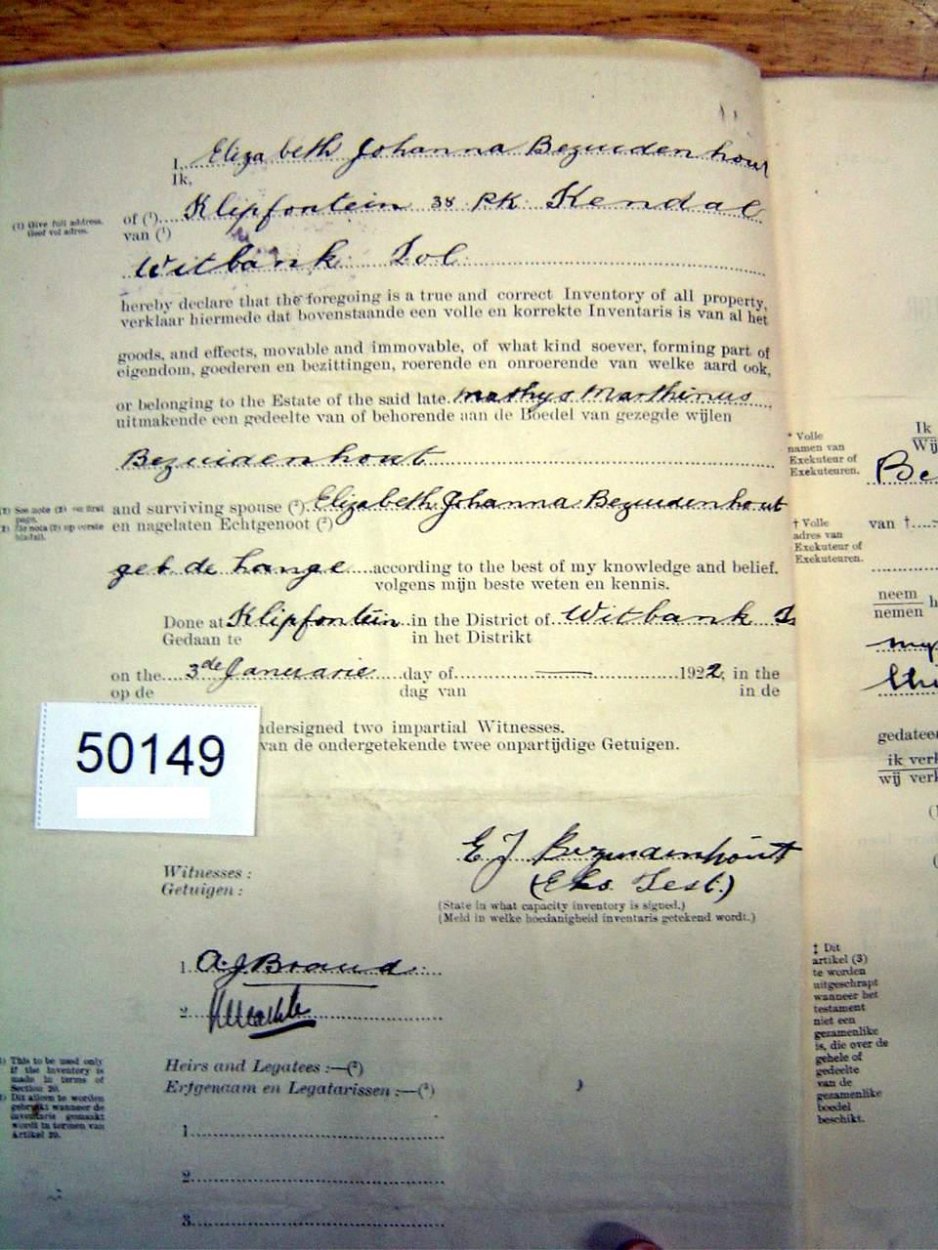 I, Elizabeth Johanna Bezuidenhout
Ik,
(1) Give full address.
Geef vol adres.
of (1) Klipfontein 38 PK Kendal
van (1)
Witbank
hereby declare that the foregoing is a true and correct Inventory of all property,
verklaar hiermede dat bovenstaande een volle en korrekte Inventaris is van al het
goods, and effects, movable and immovable, of what kind soever, forming part of
eigendom, goederen en bezittingen, roerende en onroerende van welke aard ook,
or belonging to the Estate of the said late Mathys Marthinus
uitmakende een gedeelte van of behorende aan de Boedel van gezegde wijlen
Bezuidenhout
(2) See note (2) on first
page.
(2) Zie nota (2) op eerste
bladzil.
and surviving spouse (2) Elizabeth Johanna Bezuidenhout
en nagelaten Echtgenoot (2)
geb de Lange according to the best of my knowledge and belief.
volgens mijn beste weten en kennis.
Done at Klipfontein in the District of Witbank
Gedaan te in het Distrikt
on the 3de Januarie day of — 1922, in the
op de dag van in de
ndersigned two impartial Witnesses.
van de ondergetekende twee onpartijdige Getuigen.
50149
E J Bezuidenhout
(Eks. Test.)
Witnesses :
Getuigen :
(State in what capacity inventory is signed.)
(Meld in welke hoedanigheid inventaris getekend wordt.)
1. A.J. Brand
2.
Heirs and Legatees :—(3)
Erfgenaam en Legatarissen :—(3)
) This to be used only
if the Inventory is
made in terms of
Section 20.
) Dit alleen te worden
gebruikt wanneer de
inventaris gemaakt
wordt in termen van
Artikel 20.
1
2
3
* Volle
namen van
Exekuteur of
Exekuteuren.
Ik
Wij
Be
† Volle
adres van
Exekuteur of
Exekuteuren.
van †
neem
nemen h
my
gedateer
ik verk
wij verk
‡ Dit
artikel (3)
te worden
uitgeschrapt
wanneer het
testament
niet een
gezamenlike
is, die over de
gehele of
gedeelte
van de
gezamenlike
boedel
beschikt.